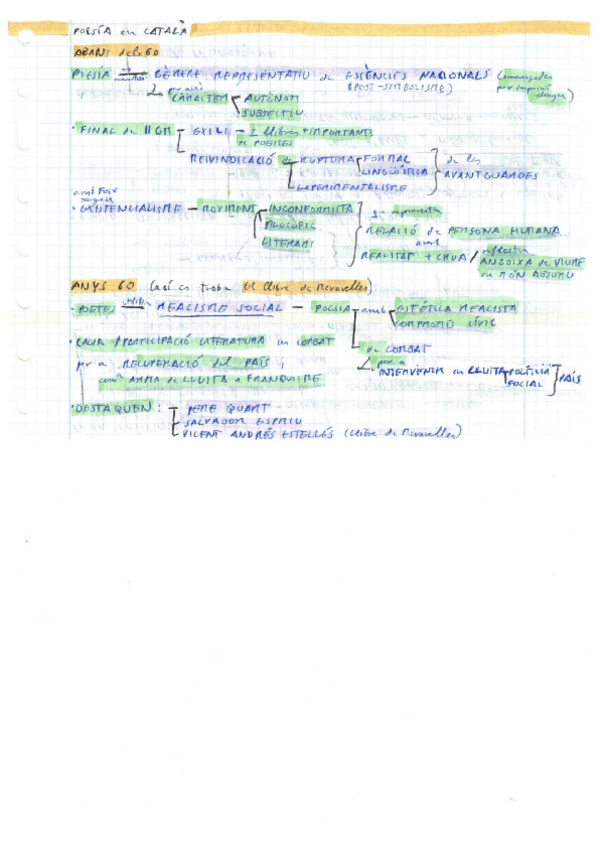 POESÍA en CATALÀ
ABANS dels 60
POESÍA GÈNERE REPRESENTATIU de ESSÈNCIES NACIONALS (amenaçades
(POST-SIMBOLISME) per
CARÀCTER AUTÒNOM
SUBJECTIU
· FINAL de II GM - EXILI - 2 llibres + IMPORTANTS
de POEMES
REIVINDICACIÓ de RUPTURA FORMAL de les
LINGÜÍSTICA AVANTGUARDES
EXPERIMENTALISME
amb Foix
· EXISTENCIALISME - MOVIMENT - INCONFORMISTA es representa
FILOSÒFIC RELACIÓ de PERSONA HUMANA...
LITERARI amb
REALITAT + CRUA / reflectia
ANGOIXA de VIURE
en MÓN ABSURD
ANYS 60 (aquí es troba el Llibre de Meravelles)
· POETES utilitzen REALISME SOCIAL - POESIA amb ESTÈTICA REALISTA
COMPROMÍS CÍVIC
· CALIA / PARTICIPACIÓ LITERATURA en COMBAT de COMBAT
per a RECUPERACIÓ del PAÍS i per a INTERVENIR en LLUITA POLÍTICA PAÍS
com a ARMA de LLUITA a FRANQUISME SOCIAL
· DESTAQUEN: PERE QUART
- SALVADOR ESPRIU
VICENT ANDRÉS ESTELLÉS (Llibre de Meravelles)